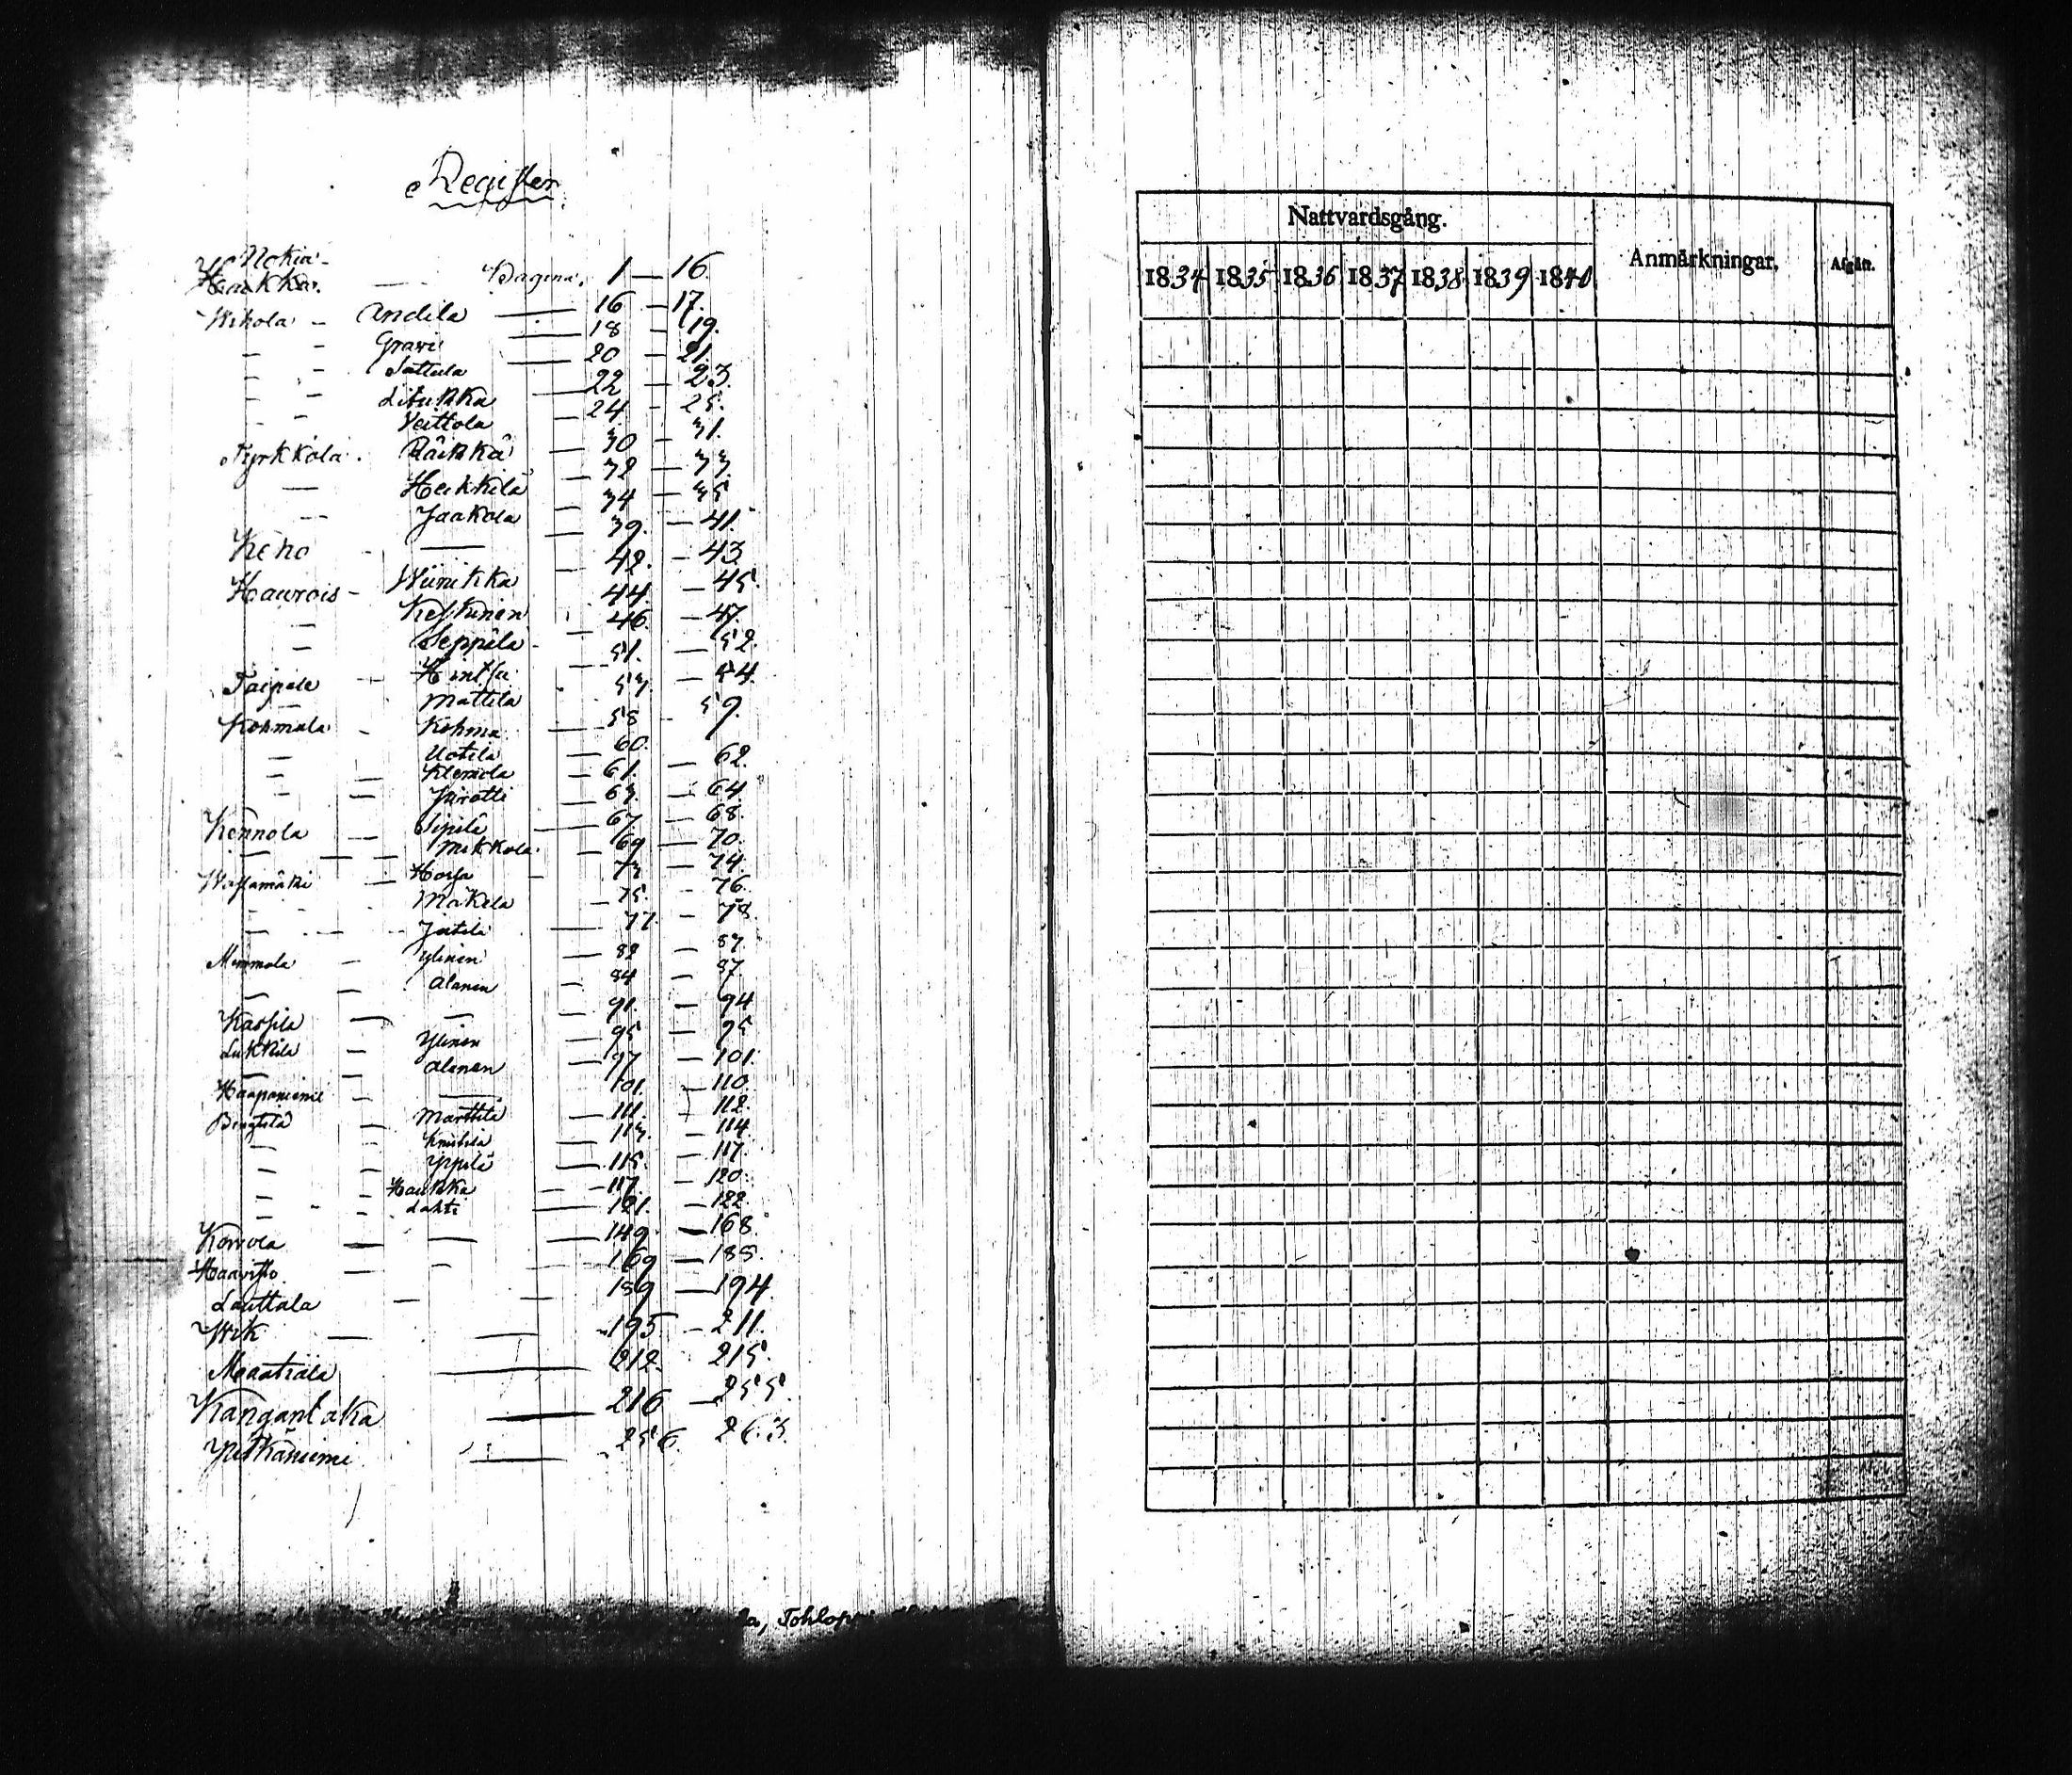 Register.
Nokia -
Haukka. — Pagina. 1 — 16
Wihola - Andila — 16 — 17.
- - Grari — 18 — 19.
- - Sattula — 20 — 21.
- - Litukka — 22 — 23.
- - Veittola — 24 - 25.
Tyrkkölä. Räikkä — 30 — 31.
— Heikkilä — 32 — 33.
— Jaakola — 34 — 35
Keho - — — 39. — 41.
Haurois - Wiinikka — 42. — 43
— Keskinen 44. — 45.
— Seppälä - — 46. — 47.
Taipale - Hintsa — 51. — 52.
— Mattila 53. — 54.
Kohmala - Kohma — 58 - 59.
— Uotila — 60.
— — Klemola — 61. — 62.
— — Juratti — 63. — 64
Kennola — Sipilä — 67 — 68.
— — — Mikkola. — 69 — 70.
— Horja — 73 — 74
- - Mäkelä — 75. - 76.
- - Jutila — 77. - 78.
Mommola — Ylinen — 82 — 83.
— — Alanen — 84 — 87.
— — 91. — 94
Lukkila — Ylinen — 95 — 95
— — Alanen — 97 — 101.
Haapaniemi — — 101. — 110.
Bengtilä - Marttila — 111. 112.
— - Knuutila — 113. — 114
— - Yppilä — 115. — 117.
— - Haukka — 117. - 120.
— - Lahti — 121. — 122
Korvola — — — 149. — 168.
Haavisto — - - 169 — 188.
Lauttala — — 189 — 194.
Wik — — 195 - 211.
Maatiala — 212. 215.
Kangantaka — 216 — 255.
Pitkäniemi — 256. 263.
Tohlopi
Nattvardsgång.
Anmärkningar.
Afgått.
1834 1835 1836 1837 1838 1839 1840